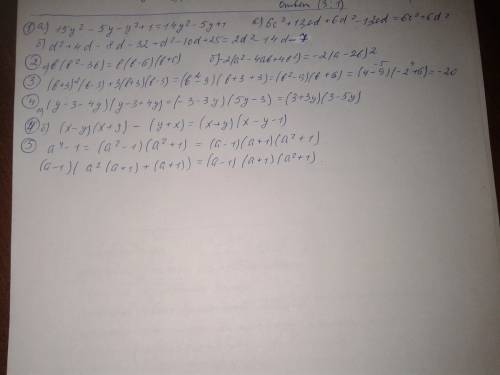 Ответ (3;1)
① а) 15y² - 5y - y² + 1 = 14y² - 5y + 1 в) 6c² + 13cd + 6d² - 13cd = 6c² + 6d²
б) d² + 4d - 8d - 32 + d² - 10d + 25 = 2d² - 14d - 7
② а) b(b² - 36) = b(b-6)(b+6) б) -2(a² - 4ab + 4b²) = -2(a - 2b)²
③ (b+3)²(b-3) + 3(b+3)(b-3) = (b² - 9)(b+3+3) = (b² - 9)(b+6) = (4-9)(-2+6) = -20
④ а) (y - 3 - 4y)(y - 3 + 4y) = (-3 - 3y)(5y - 3) = (3+3y)(3-5y)
④ б) (x-y)(x+y) - (y+x) = (x+y)(x-y-1)
⑤ a⁴ - 1 = (a² - 1)(a² + 1) = (a-1)(a+1)(a² + 1)
(a-1)(a²(a+1) + (a+1)) = (a-1)(a+1)(a² + 1)